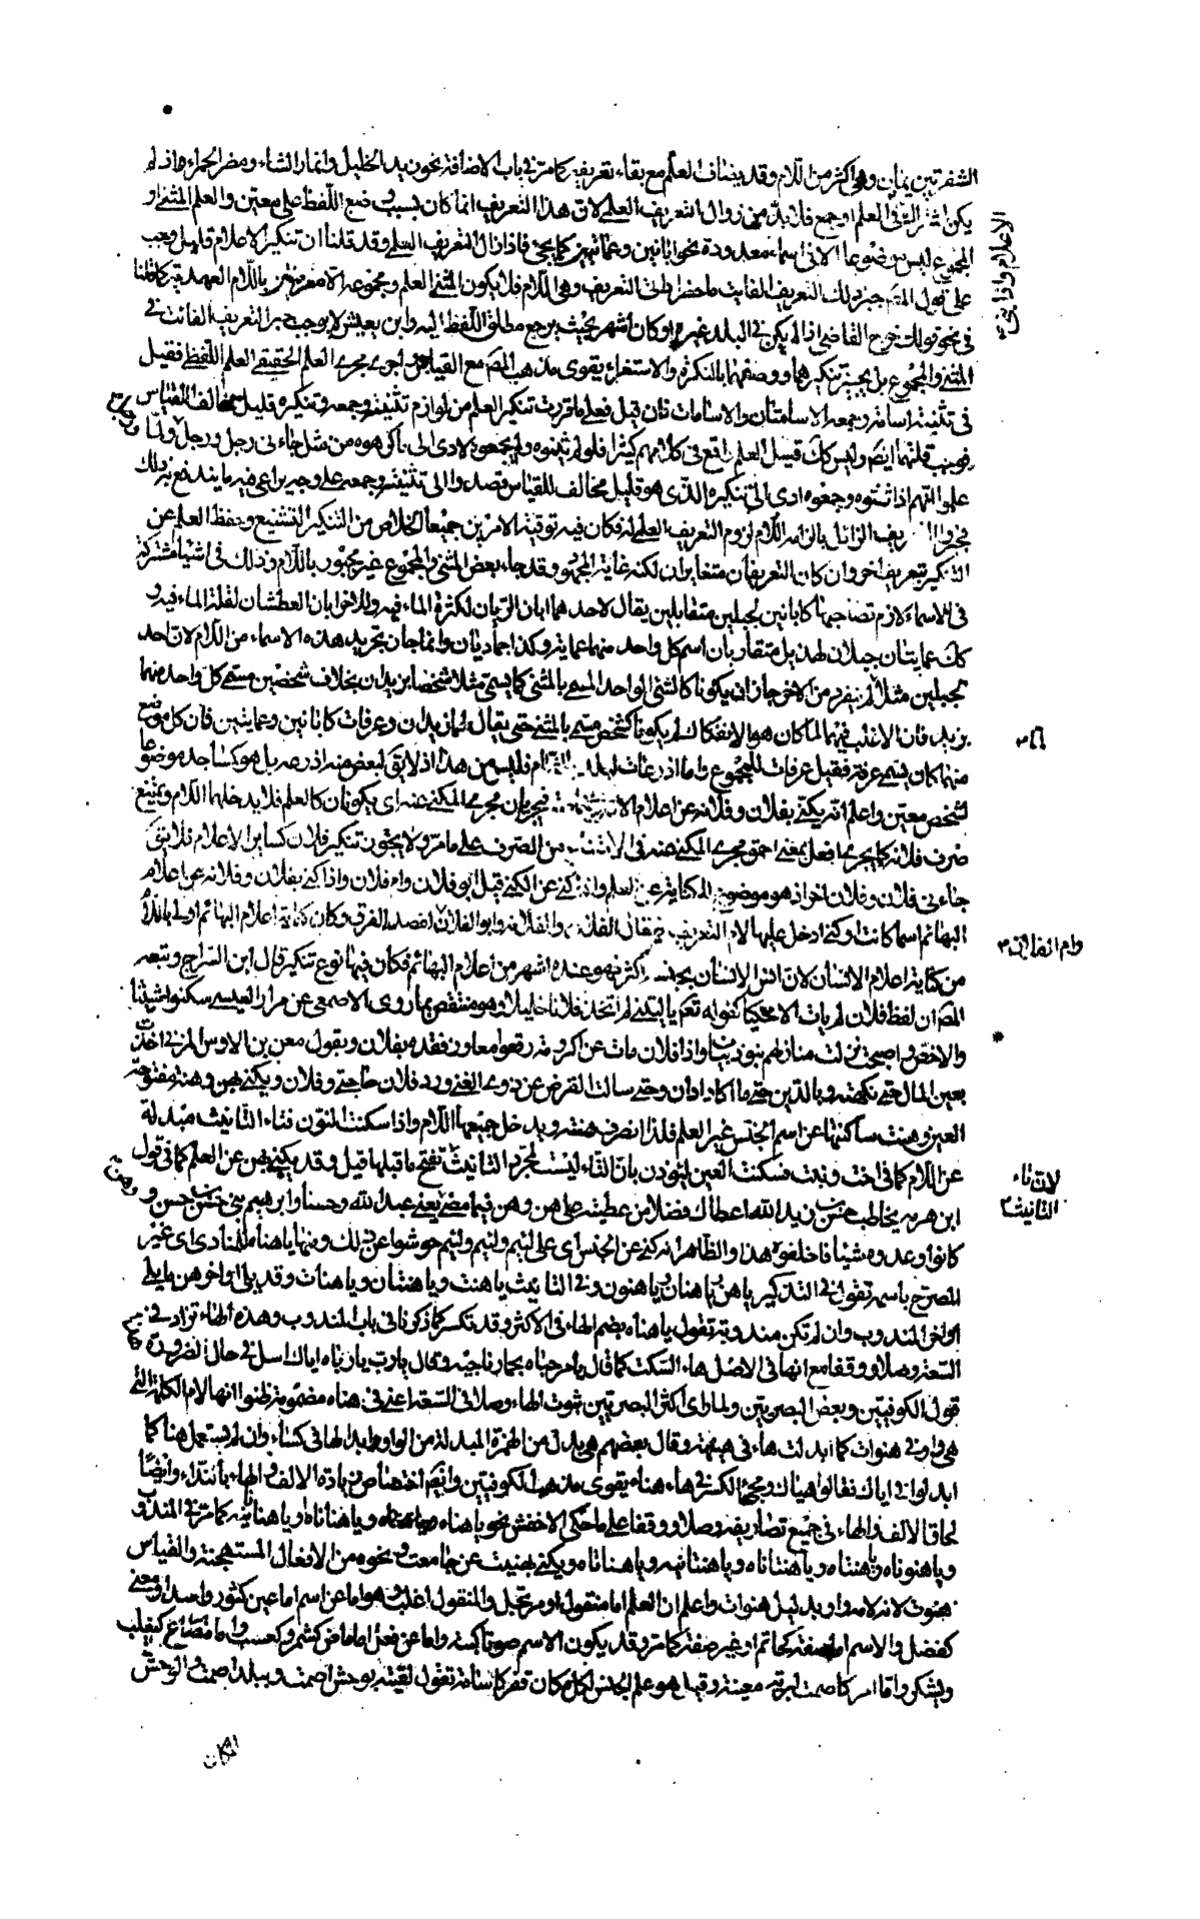 الشفرتين يمان وهي أكثر من اللام وقد يضاف العلم مع بقاء تعريفه كما مر في باب الاضافة نحو زيد الخليل وانمار الشاء ومضر الحمراء هذا
يكن اشتر الثني العلم او جمع فلا بد من زوال التعريف العلمي لان هذا التعريف انما كان بسبب وضع اللفظ على معين والعلم المثنى او
المجموع ليس موضوعا الا في اسماء معدودة نحو ابانين وعمايتين كما يجئ فاذا زال التعريف العلمي وقد قلنا ان تنكير الاعلام قليل وجب
على قول المص جبر ذلك التعريف الفائت باخصر اداتي التعريف وهي اللام فلا يكون المثنى العلم ومجموعه الا معرفين باللام العهدية كما قلنا
في نحو قولك خرج القاضي اذا لم يكن في البلد غيره او كان اشهر بحيث يرجع مطلق اللفظ اليه وابن يعيش لا يوجب جبر التعريف الفائت في
المثنى والمجموع بل يجيز تنكيرهما ووصفهما بالنكرة والاستقراء يقوى مذهب المص مع القياس اجرى مجرى العلم الحقيقي العلم اللفظي فقيل
في تثنية اسامة وجمعه الاسامتان والاسامات فان قيل فعلى ما قررت تنكير العلم من لوازم تثنيته وجمعه وتنكيره قليل مخالف للقياس
فوجب قلتهما ايضا وليس كذلك قيل العلم واقع في كلامهم كثيرا فلو لم يثنوه ولم يجمعوه لادى الى ما كرهوه من مثل جاءني رجل ورجل ولما
علموا انهم اذا ثنوه وجمعوه ادى الى تنكيره الذي هو قليل مخالف للقياس قصدوا الى تثنيته وجمعه على وجه يراعى فيه ما يندفع به ذلك
فجبروا التعريف الزائل بالزامه اللام لزوم التعريف العلمي له فكان فيه توفية الامرين جميعا الخلاص من التنكير الشنيع وحفظ العلم عن
التنكير بتعريف اخر وان كان التعريفان متغايران لكنه غاية المجهود وقد جاء بعض المثنى والمجموع غير مجبور باللام وذلك في اشياء مشتركة
في الاسماء لازم تصاحبها كابانين لجبلين متقابلين يقال لاحدهما ابان الريان لكثرة الماء فيه وللاخر ابان العطشان لقلة الماء فيه و
كذلك عمايتان جبلان لهذيل متقاربان اسم كل واحد منهما عماية وكذا جماديان وانما جاز تجريد هذه الاسماء من اللام لان احد
الجبلين مثلا لم ينفرد من الاخر جاز ان يكونا كالشئ الواحد المسمى بالمثنى كما يسمى مثلا شخص بزيدان بخلاف شخصين مسمى كل واحد منهما
بزيد فان الاغلب فيهما لما كان هو الانفكاك لم يكونا كشخص مسمى بالمثنى حتى يقال لهما زيدان وعرفات كابانين وعمايتين فان كل موضع
منها كان يسمى عرفة فقيل عرفات للمجموع واما اذرعات لبلد بالشام فليس من هذا اذ لا يقال لبعض منه اذرعة بل هو كمساجد موضوعا
لشخص معين واعلم انه يكنى بفلان وفلانة عن اعلام الاناسي فيجريان مجرى المكنى عنه اي يكونان كالعلم فلا يدخلهما اللام ويمتنع
صرف فلانة كما يجرى افعل بمعنى احمق مجرى المكنى عنه في الامتناع من الصرف على ما مر ولا يجوز تنكير فلان كسائر الاعلام فلا يقال
جاءني فلان وفلان اخر اذ هو موضوع للكناية عن العلم واذا كنى عن الكنى قيل ابو فلان وام فلان واذا كنى بفلان وفلانة عن اعلام
البهائم اسما كانت او كنى ادخل عليها لام التعريف فيقال الفلان والفلانة وابو الفلان لقصد الفرق وكان كناية اعلام البهائم اولى باللام
من كناية اعلام الانسان لان انس الانسان بجنسه اكثر فهو عنده اشهر من اعلام البهائم فكان فيها نوع تنكير قال ابن السراج وتبعه
المص ان لفظ فلان لم يات الا محكيا كقوله تعالى يا ليتني لم اتخذ فلانا خليلا وهو منتقض بما روى الاصمعي عن مرار العبسي سكنوا شبيثا
والاحص واصبحت نزلت منازلهم بنو ذبيان واذا فلان مات عن اكرومة رقعوا معاوز فقده بفلان وبقول معن بن الاوس المزني اخذت
بعين المال حتى نهكته وبالدين حتى ما اكاد ادان وحتى سالت القرض عن ذوي الغنى ورد فلان حاجتي وفلان ويكنى بهن وهنة مفتوحة
العين وهنت ساكنتها عن اسم الجنس غير العلم فلذا انصرف هنة ويدخل جميعها اللام واذا سكنت النون فتاء التانيث مبدلة
عن اللام كما في اخت وبنت فسكنت العين ليؤذن بان التاء ليست لمجرد التانيث تفتح ما قبلها قيل وقد يكنى بهن عن العلم كما في قول
ابن هرمة يخاطب حسن بن زيد الله اعطاك فضلا من عطيته على هن وهن فيما مضى يعنى عبد الله وحسنا وابراهيم بني حسن بن حسن و
كانوا وعدوه شيئا فاخلفوه هذا والظاهر انه كنى عن الجنس اي على لئيم ولئيم ولئيم حوشوا عن ذلك ومنها يا هناه للمنادى اي غير
المصرح باسمه تقول في التذكير يا هن يا هنان يا هنون وفي التانيث يا هنت ويا هنتان ويا هنات وقد يلي اواخرهن ما يلي
اواخر المندوب وان لم تكن مندوبة تقول يا هناه بضم الهاء في الاكثر وقد تكسر كما ذكرنا في باب المندوب وهذه الهاء تزاد في
السعة وصلا ووقفا مع انها في الاصل هاء السكت كما قال يا مرحباه بحمار ناجيه وقال يا رب يا رباه اياك اسل في حال الضرورة
قول الكوفيين وبعض البصريين ولما راى اكثر البصريين ثبوت الهاء وصلا في السعة اعنى في هناه مضمومة ظنوا انها لام الكلمة التي
هي واو في هنوات كما ابدلت هاء في هنيهة وقال بعضهم هي بدل من الهمزة المبدلة من الواو ابدالها في كساء وان لم يستعمل هنا كما
ابدلوا في اياك فقالوا هياك ومجئ الكسر في هاء هناه يقوى مذهب الكوفيين وايضا اختصاص زيادة الالف والهاء بالنداء وايضا
لحاق الالف والهاء في جميع تصاريفه وصلا ووقفا على ما حكى الاخفش نحو يا هناه ويا هناناه او يا هنانيه كما مر في المندوب
ويا هنوناه ويا هنتاه ويا هنتاناه ويا هنتانيه ويا هناتاه ويكنى بهنيت عن جامعت ونحوه من الافعال المستهجنة والقياس
هنوت لانه لامه واو بدليل هنوات واعلم ان العلم اما منقول او مرتجل والمنقول اغلب وهو اما عن اسم اما عين كثور واسد او معنى
كفضل والاسم اما صفة كحاتم او غير صفة كما مر وقد يكون الاسم صوتا كببة واما عن فعل اما ماض كشمر وكعسب واما مضارع كيغلب
ويشكر واما امر كاصمت لبرية معينة وقيل هو علم الجنس لكل مكان قفر كاسامة تقول لقيته بوحش اصمت وببلد اصمت والوحش
الاعلام واذا ثني
وام الفلان
لان تاء
التانيث
المكان